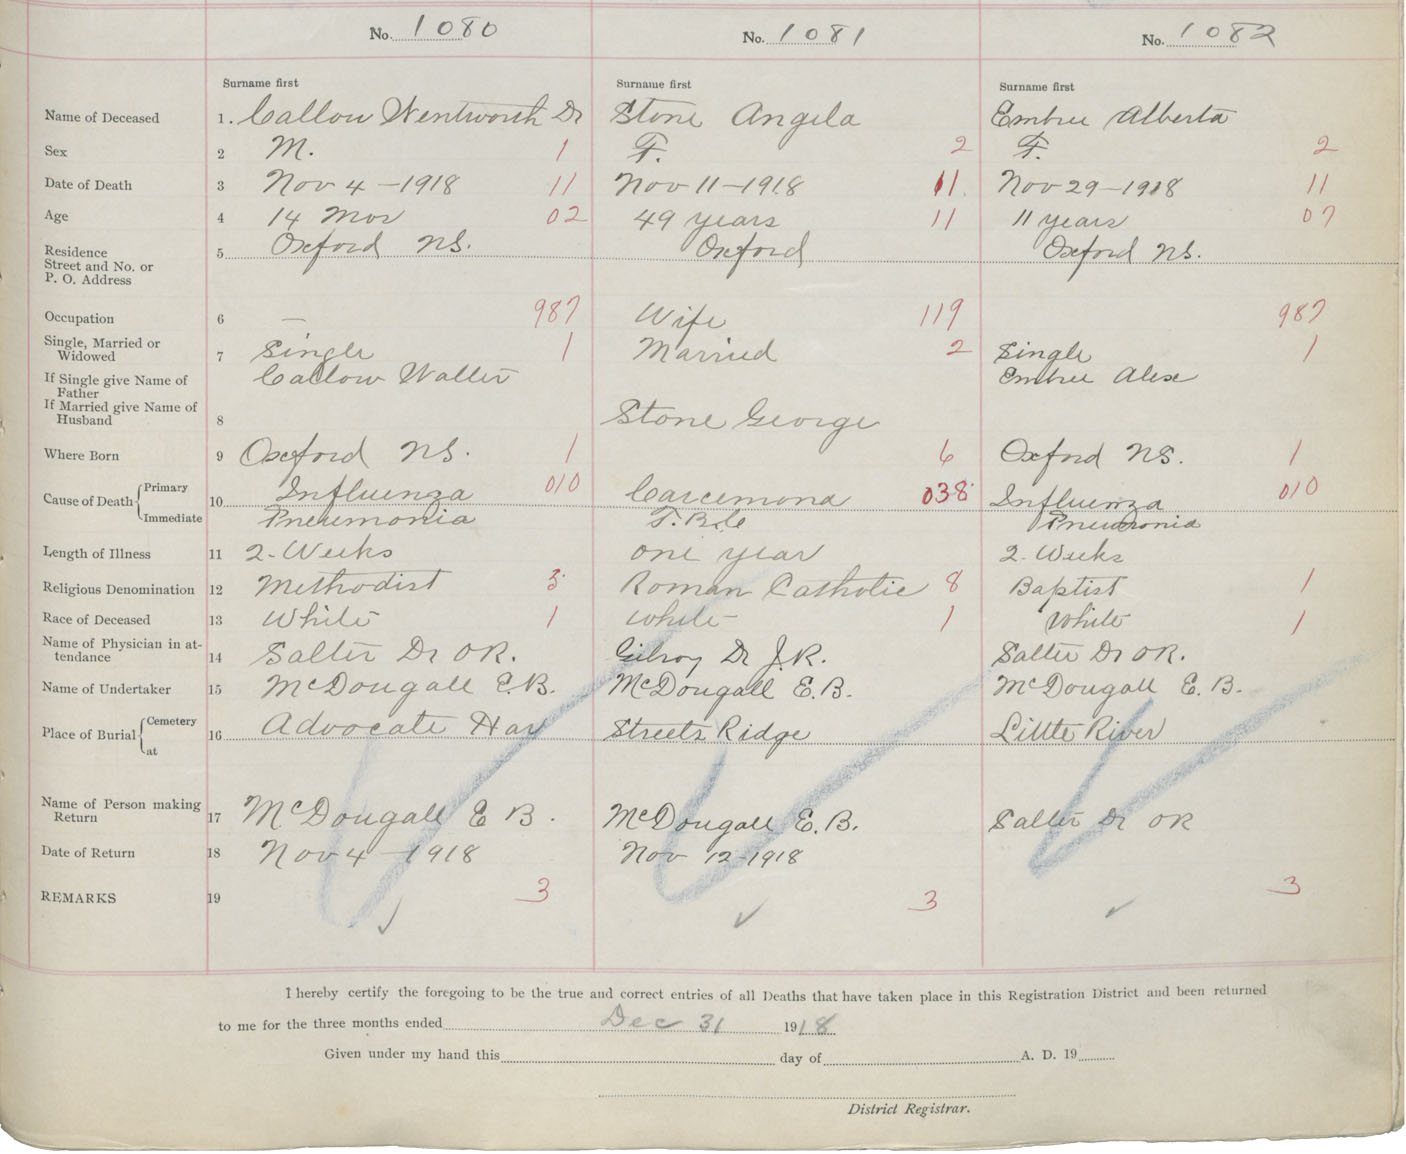 No. 1080 No. 1081 No. 1082
Surname first Surname first Surname first
Name of Deceased 1. Callow Wentworth Stone Angela Embree Alberta
Sex 2 M. 1 F. 2 F. 2
Date of Death 3 Nov 4-1918 11 Nov 11-1918 11 Nov 29-1918 11
Age 4 14 Mos 02 49 years 11 11 years 07
Residence 5 Oxford NS. Oxford Oxford NS.
Street and No. or
P. O. Address
Occupation 6 — 987 Wife 119 987
Single, Married or
Widowed 7 Single 1 Married 2 Single 1
If Single give Name of Callow Walter Embree Alex
Father
If Married give Name of
Husband 8 Stone George
Where Born 9 Oxford NS. 1 6 Oxford NS. 1
Cause of Death Primary 10 Influenza 010 Carcemona 038 Influenza 010
Immediate Pneumonia Pneumonia
Length of Illness 11 2-Weeks one year 2-Weeks
Religious Denomination 12 Methodist 3 Roman Catholic 8 Baptist 1
Race of Deceased 13 White 1 White 1 White 1
Name of Physician in at-
tendance 14 Salter Dr OR. Gilroy Dr J.R. Salter Dr OR.
Name of Undertaker 15 McDougall E.B. McDougall E.B. McDougall E.B.
Place of Burial Cemetery 16 Advocate Har Streets Ridge Little River
at
Name of Person making
Return 17 McDougall E B. McDougall E.B. Salter Dr OR
Date of Return 18 Nov 4-1918 Nov 12-1918
REMARKS 19 3 3 3
I hereby certify the foregoing to be the true and correct entries of all Deaths that have taken place in this Registration District and been returned
to me for the three months ended Dec 31 1918
Given under my hand this day of A. D. 19
District Registrar.